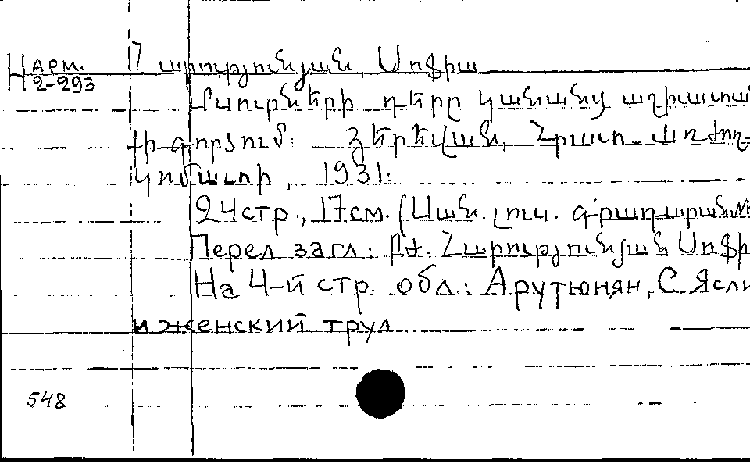 Н арм.
2-293
Հարությունյան Սոֆիա
Մսուրների դերը կանանց աշխատան
քի գործում: Յերեվան, Հրատ. Առժող-
կոմատի, 1931:
24стр., 17см. (Սան. լուս. գրադարան
Перел загл: Բժ. Հարությունյան Սոֆի
На 4-й стр. обл.: Арутюнян, С. Ясли
и женский труд
548